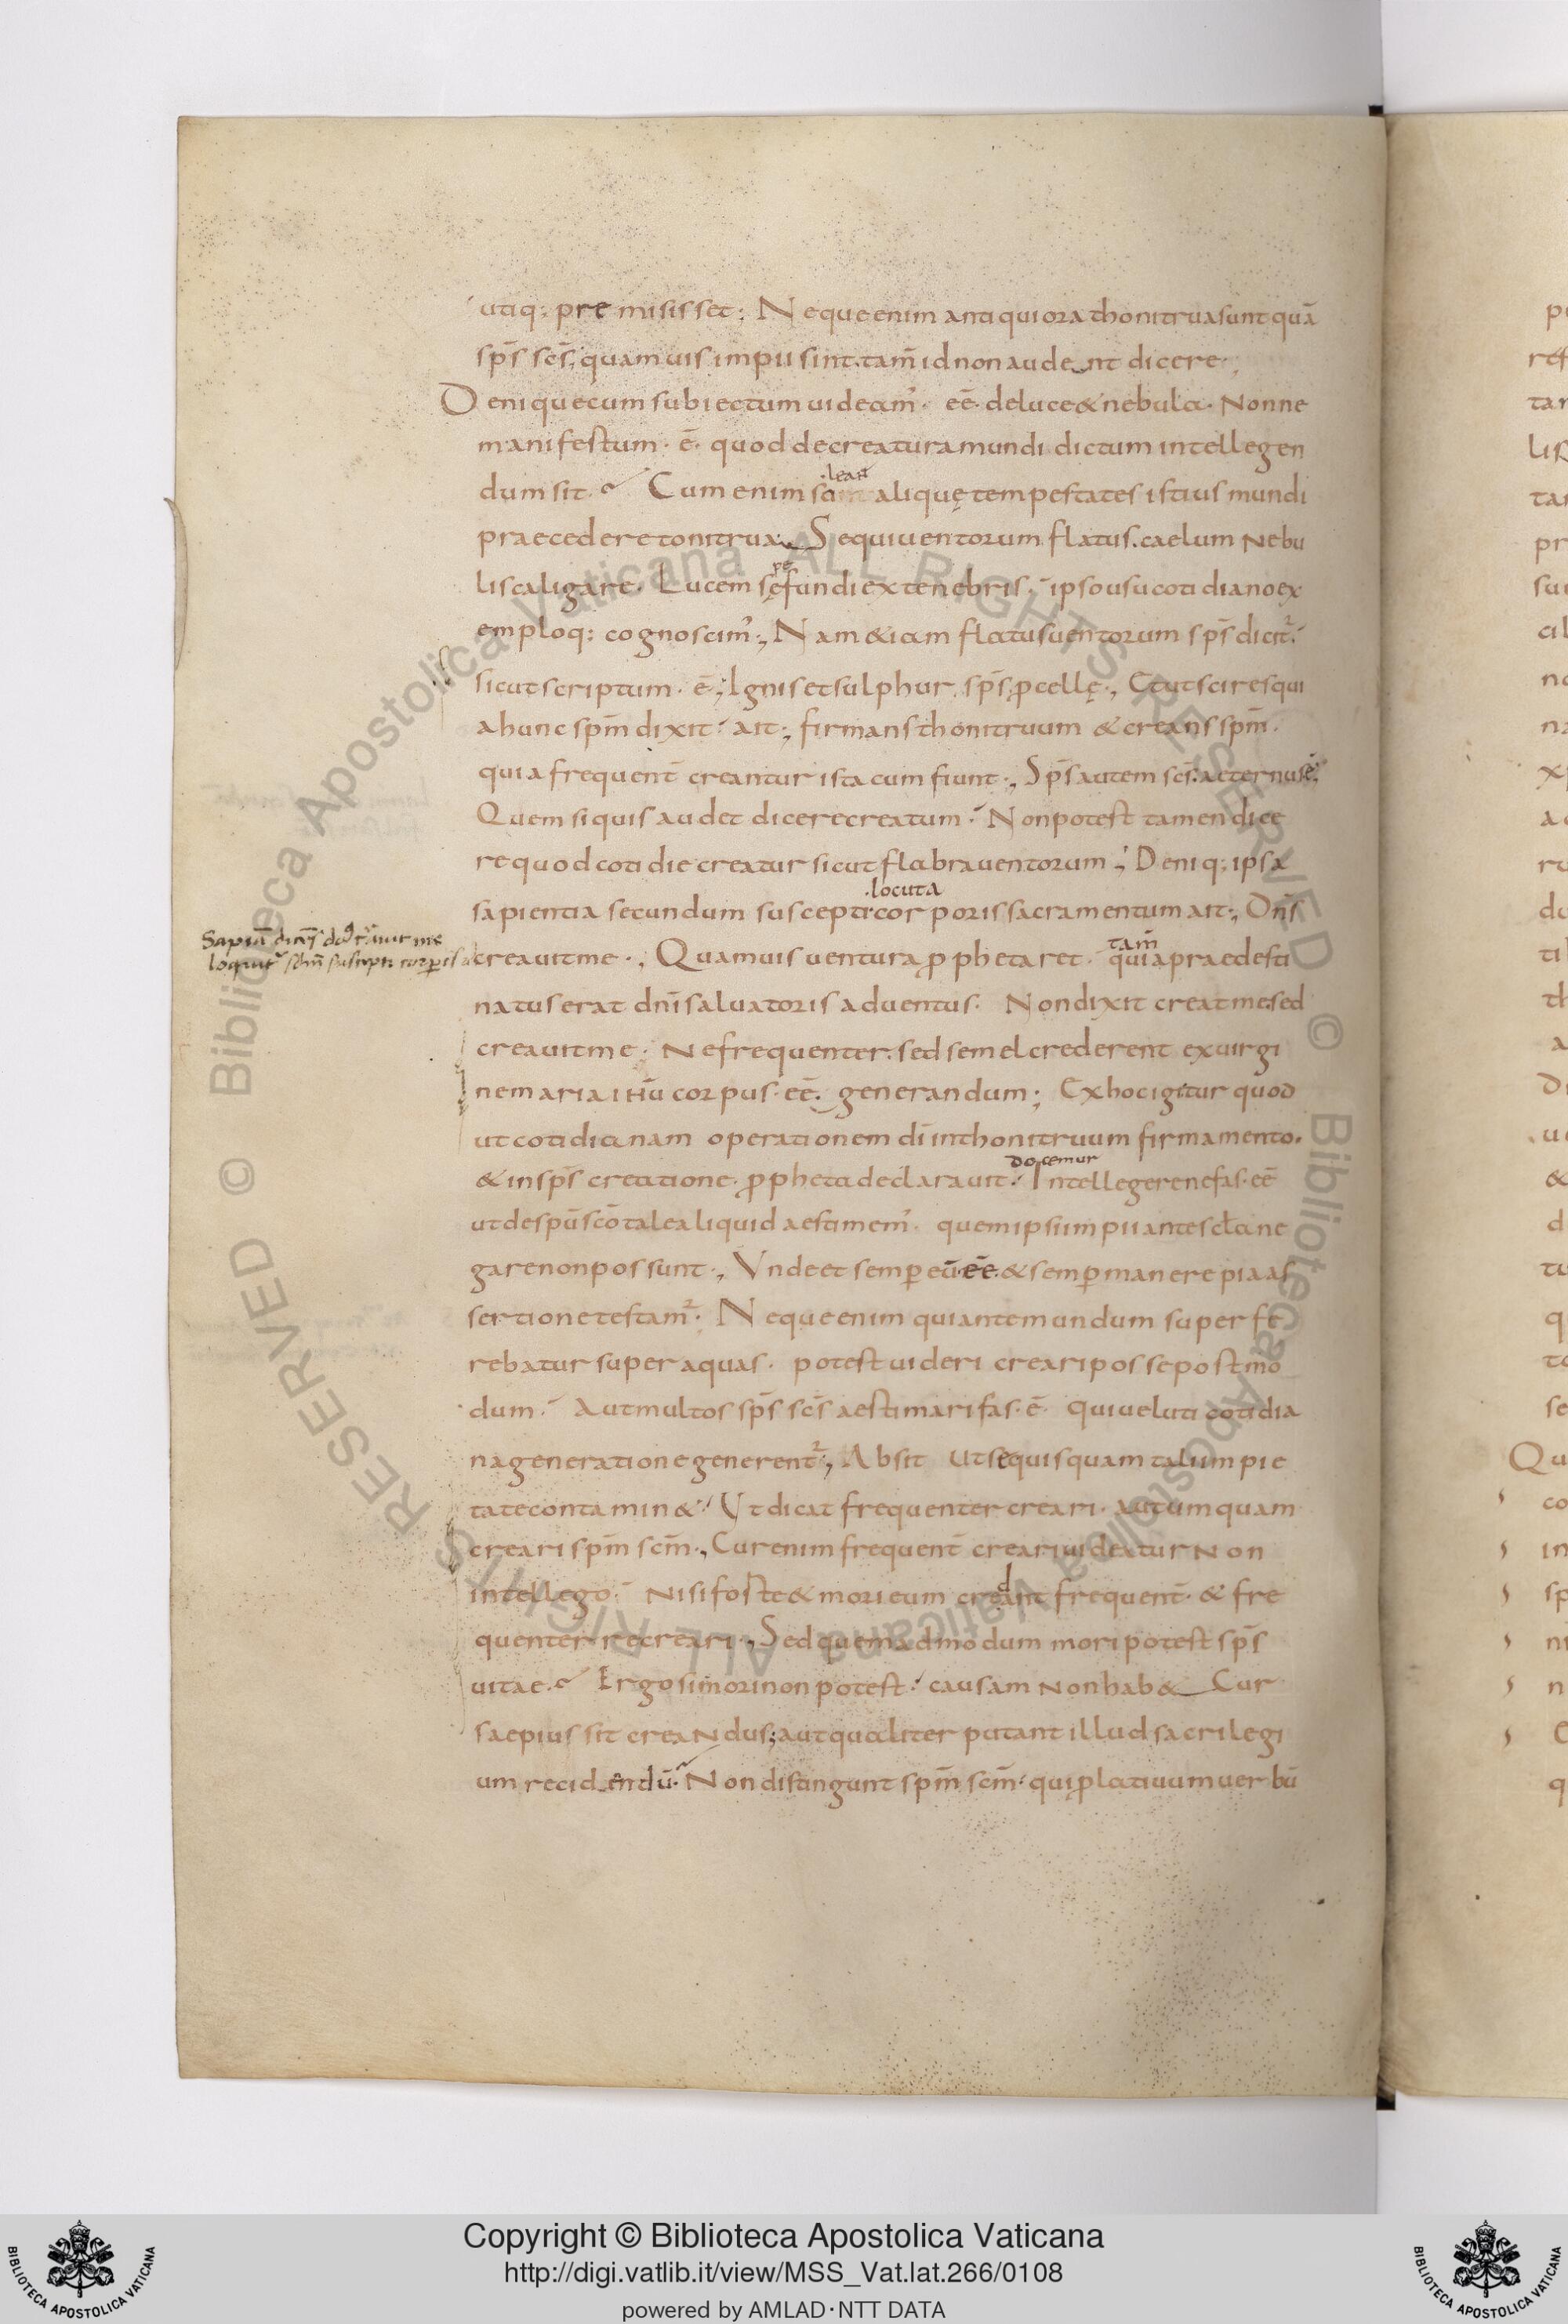 utiq; premisisset; Neque enim antiquiora thonitrua sunt quā
sp̄s sc̄s, quamuis impii sint. tam̄ id non audent dicere.
Denique cum subiectum uideam᾽. eē. de luce & nebula. Nonne
manifestum. ē. quod de creatura mundi dictum intellegen
dum sit. Cum enim soleant aliquę tempestates istius mundi
praecedere tonitrua. Sequi uentorum flatus. caelum nebu
lis caligare. Lucem sępe fundi ex tenebris. ipso usu cotidiano ex
emploq; cognoscim᾽; Nam & iam flatus uentorum sp̄s dicit᾽.
sicut scriptum. ē; Ignis et sulphur sp̄s ꝓcellę., Et ut scires qui
a hunc sp̄m dixit. ait; firmans thonitruum & creans sp̄m.
quia frequent̄ creantur ista cum fiunt., Sp̄s autem sc̄s. aeternus ē;
Quem si quis audet dicere creatum. Non potest tamen dice
re quod cotidie creatur sicut flabra uentorum; Deniq; ipsa
sapientia secundum suscepti corporis sacramentum locuta ait., Dn̄s
creauit me., Quamuis uentura ꝓphetaret. tam̄ quia praedesti
natus erat dn̄i saluatoris aduentus. Non dixit creat me. sed
creauit me. Ne frequenter. sed semel crederent ex uirgi
ne maria iħu corpus. eē. generandum; Ex hoc igitur quod
ut cotidianam operationem dī in thonitruum firmamento.
& in sp̄s creatione. ꝓpheta declarauit. docemur Intellegere nefas. eē
ut de spū scō tale aliquid aestimem᾽. quem ipsi impii ante scl̄a ne
gare non possunt., Vnde et semꝑ eū. eē. & semꝑ manere pia as
sertione testam᾽. Neque enim qui ante mundum superfe
rebatur super aquas. potest uideri creari posse postmo
dum. Aut multos sp̄s sc̄s aestimari fas. ē. qui uelut cotidia
na generatione generent᾽., Absit ut se quisquam tali impie
tate contamin&. Vt dicat frequenter creari. aut umquam
creari sp̄m sc̄m., Cur enim frequent̄ creari uideatur non
intellego. Nisi forte & mori eum credant frequent̄. & fre
quenter recreari., Sed quemadmodum mori potest sp̄s
uitae. Ergo si mori non potest. causam non hab& Cur
saepius sit creandus; aut qualiter putant illud sacrilegi
um recidendū. Non distingunt sp̄m sc̄m. qui ꝓlatiuum uerbū
Copyright © Biblioteca Apostolica Vaticana
http://digi.vatlib.it/view/MSS_Vat.lat.266/0108
powered by AMLAD·NTT DATA